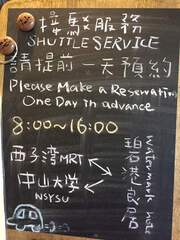 接駁服務
SHUTTLE SERVICE
請提前一天預約
Please Make a Reservation
One Day in advance
8:00~16:00
西子灣MRT
中山大学
NSYSU
碧港良居
Watermark hotel